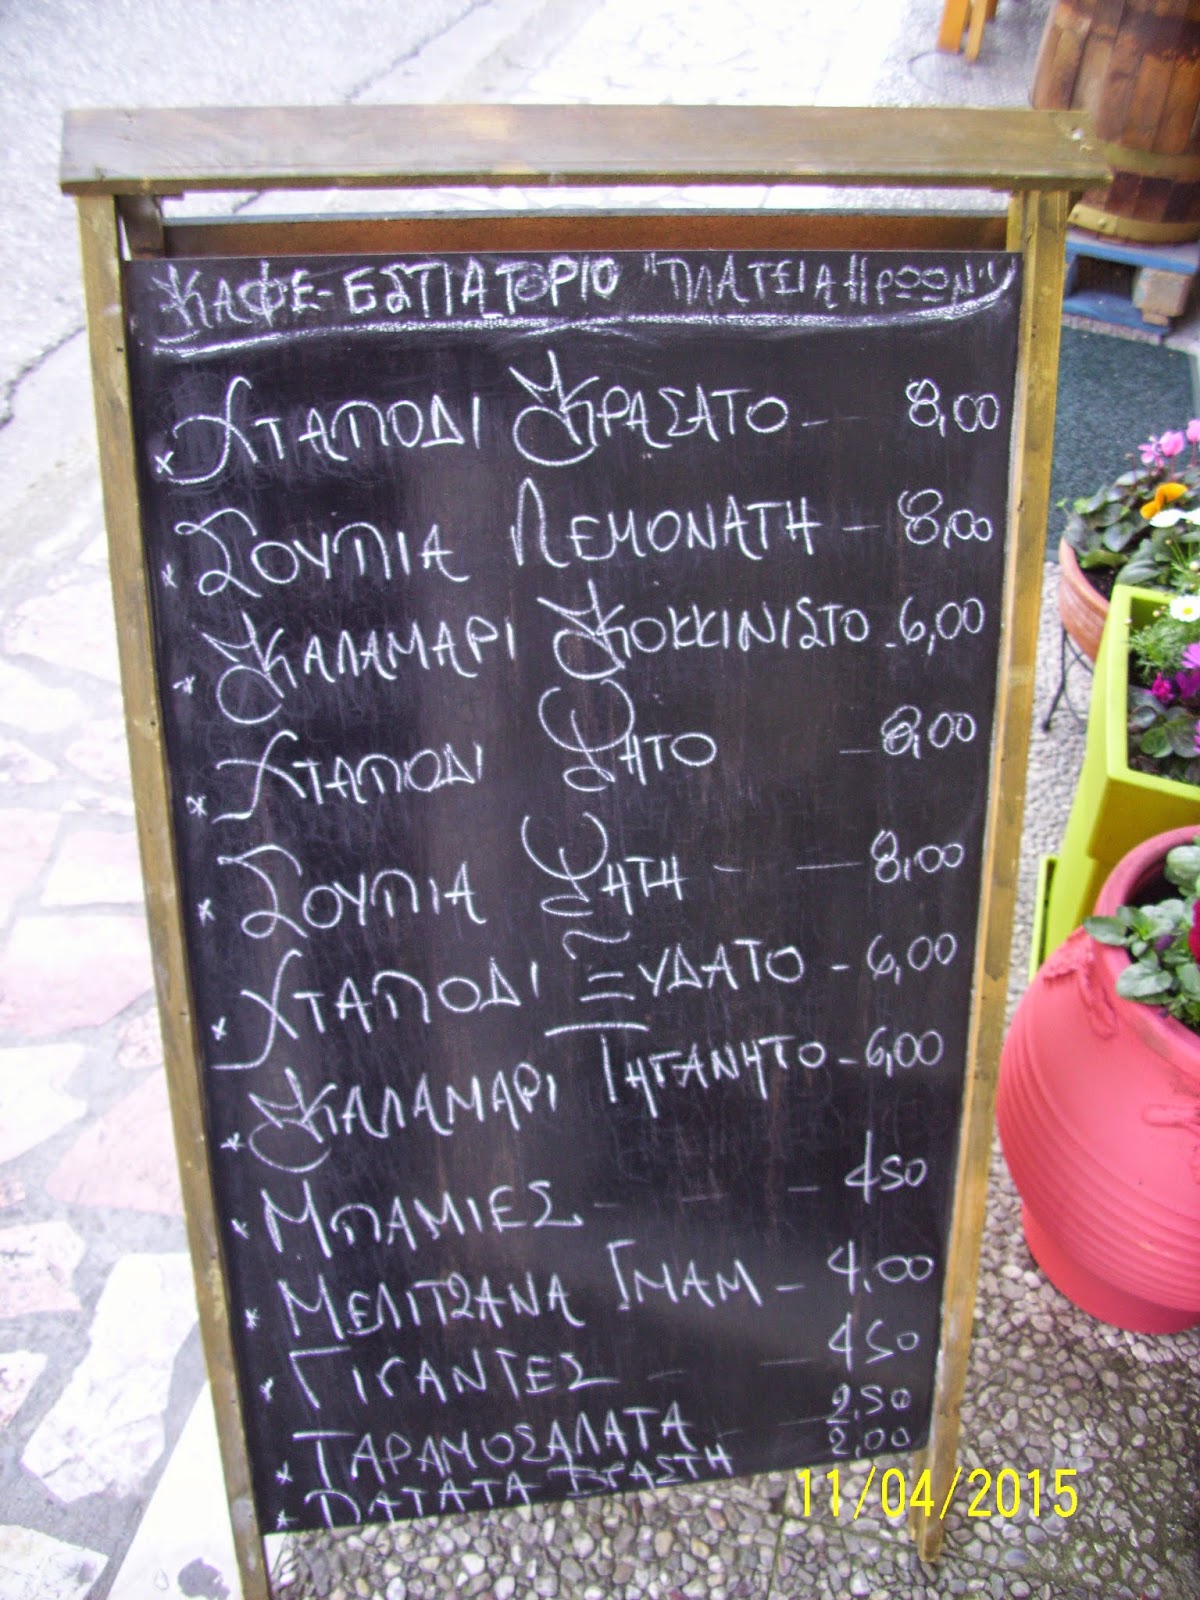 ΚΑΦΕ-ΕΣΤΙΑΤΟΡΙΟ "ΠΛΑΤΕΙΑ ΗΡΩΩΝ"
* ΧΤΑΠΟΔΙ ΚΡΑΣΑΤΟ - 8,00
* ΣΟΥΠΙΑ ΛΕΜΟΝΑΤΗ - 8,00
* ΚΑΛΑΜΑΡΙ ΚΟΚΚΙΝΙΣΤΟ - 6,00
* ΧΤΑΠΟΔΙ ΨΗΤΟ - 8,00
* ΣΟΥΠΙΑ ΨΗΤΗ - - 8,00
* ΧΤΑΠΟΔΙ ΞΥΔΑΤΟ - 6,00
* ΚΑΛΑΜΑΡΙ ΤΗΓΑΝΗΤΟ - 6,00
* ΜΠΑΜΙΕΣ - - - 4,50
* ΜΕΛΙΤΖΑΝΑ ΙΜΑΜ - 4,00
* ΓΙΓΑΝΤΕΣ - - 4,50
* ΤΑΡΑΜΟΣΑΛΑΤΑ - 2,50
* ΠΑΤΑΤΑ ΒΡΑΣΤΗ 2,00
11/04/2015